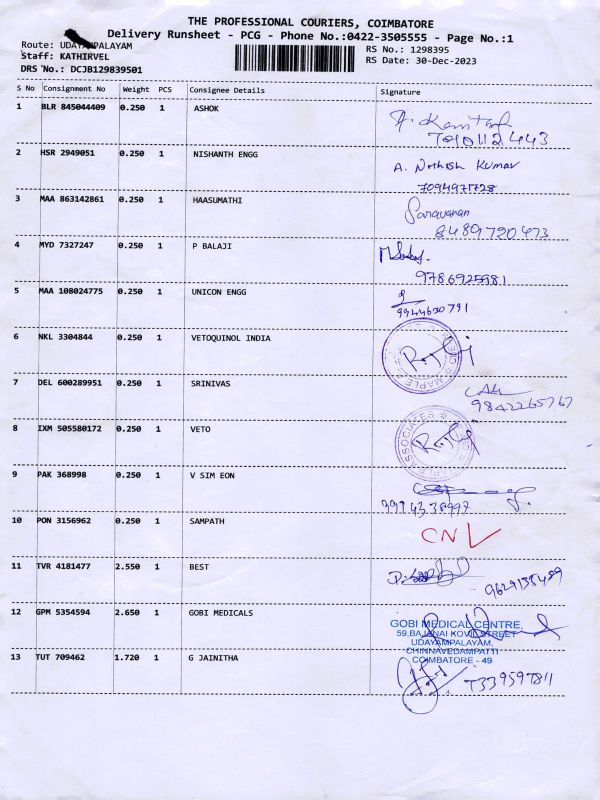 THE PROFESSIONAL COURIERS, COIMBATORE
Delivery Runsheet - PCG - Phone No.:0422-3505555 - Page No.:1
Route: UDAYAMPALAYAM
RS No.: 1298395
Staff: KATHIRVEL
RS Date: 30-Dec-2023
DRS No.: DCJB129839501
S No Consignment No Weight PCS Consignee Details Signature
1 BLR 845044409 0.250 1 ASHOK
2 HSR 2949051 0.250 1 NISHANTH ENGG A. Nithish Kumar
7094971728
3 MAA 863142861 0.250 1 HAASUMATHI Saravanan
8489720473
4 MYD 7327247 0.250 1 P BALAJI
9786925981
5 MAA 108024775 0.250 1 UNICON ENGG
9944630791
6 NKL 3304844 0.250 1 VETOQUINOL INDIA
MAPLE
7 DEL 600289951 0.250 1 SRINIVAS
9842265767
8 IXM 505580172 0.250 1 VETO
MAPLE ASSOCIATES
9 PAK 368998 0.250 1 V SIM EON
9994338997
10 PON 3156962 0.250 1 SAMPATH CN
11 TVR 4181477 2.550 1 BEST
9629135489
12 GPM 5354594 2.650 1 GOBI MEDICALS
GOBI MEDICAL CENTRE,
59,BAJANAI KOVIL STREET
UDAYAMPALAYAM,
CHINNAVEDAMPATTI
COIMBATORE - 49
13 TUT 709462 1.720 1 G JAINITHA
7339597811